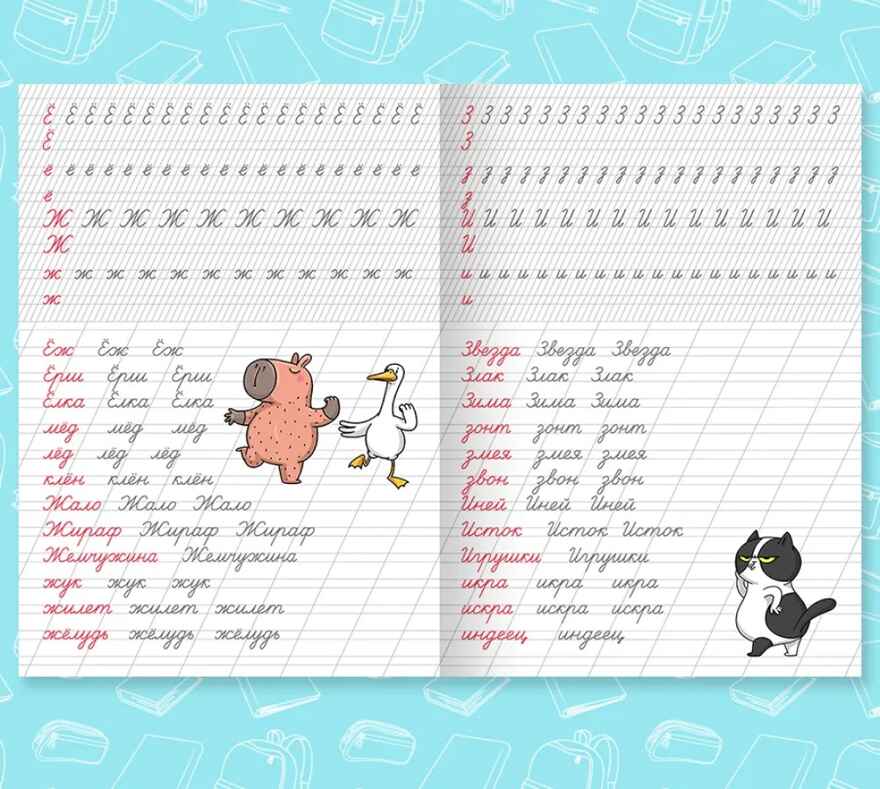 Ё Ё Ё Ё Ё Ё Ё Ё Ё Ё Ё Ё Ё Ё Ё Ё Ё Ё Ё Ё
Ё
ё ё ё ё ё ё ё ё ё ё ё ё ё ё ё ё ё ё ё ё
ё
Ж Ж Ж Ж Ж Ж Ж Ж Ж Ж
Ж
ж ж ж ж ж ж ж ж ж ж ж ж
ж
Ёж Ёж Ёж
Ёрш Ёрш Ёрш
Ёлка Ёлка Ёлка
мёд мёд мёд
лёд лёд лёд
клён клён клён
Жало Жало Жало
Жираф Жираф Жираф
Жемчужина Жемчужина
жук жук жук
жилет жилет жилет
жёлудь жёлудь жёлудь
З З З З З З З З З З З З З З З З З З З З
З
з з з з з з з з з з з з з з з з з з з з
з
И И И И И И И И И И И И И И И
И
и и и и и и и и и и и и и и и и и и и и
и
Звезда Звезда Звезда
Злак Злак Злак
Зима Зима Зима
зонт зонт зонт
змея змея змея
звон звон звон
Иней Иней Иней
Исток Исток Исток
Игрушки Игрушки
икра икра икра
искра искра искра
индеец индеец